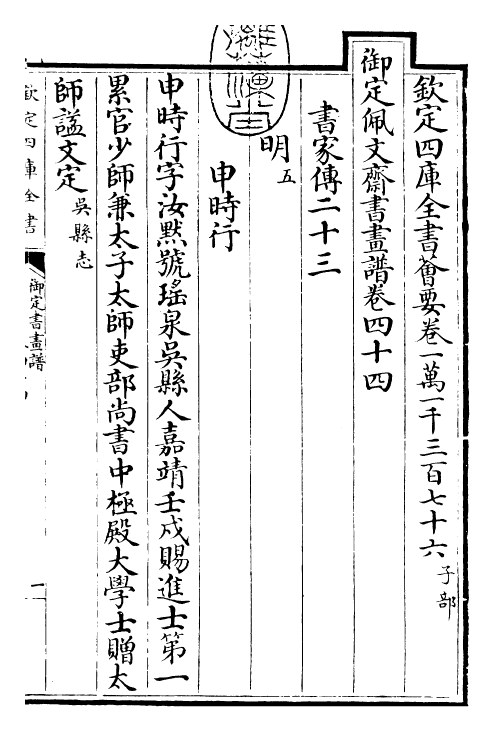 欽定四庫全書薈要卷一萬一千三百七十六 子部
御定佩文齋書畫譜卷四十四
書家傳二十三
明五
申時行
申時行字汝默號瑤泉吳縣人嘉靖壬戌賜進士第一
累官少師兼太子太師吏部尚書中極殿大學士贈太
師諡文定 吳縣志
欽定四庫全書
御定書畫譜
一